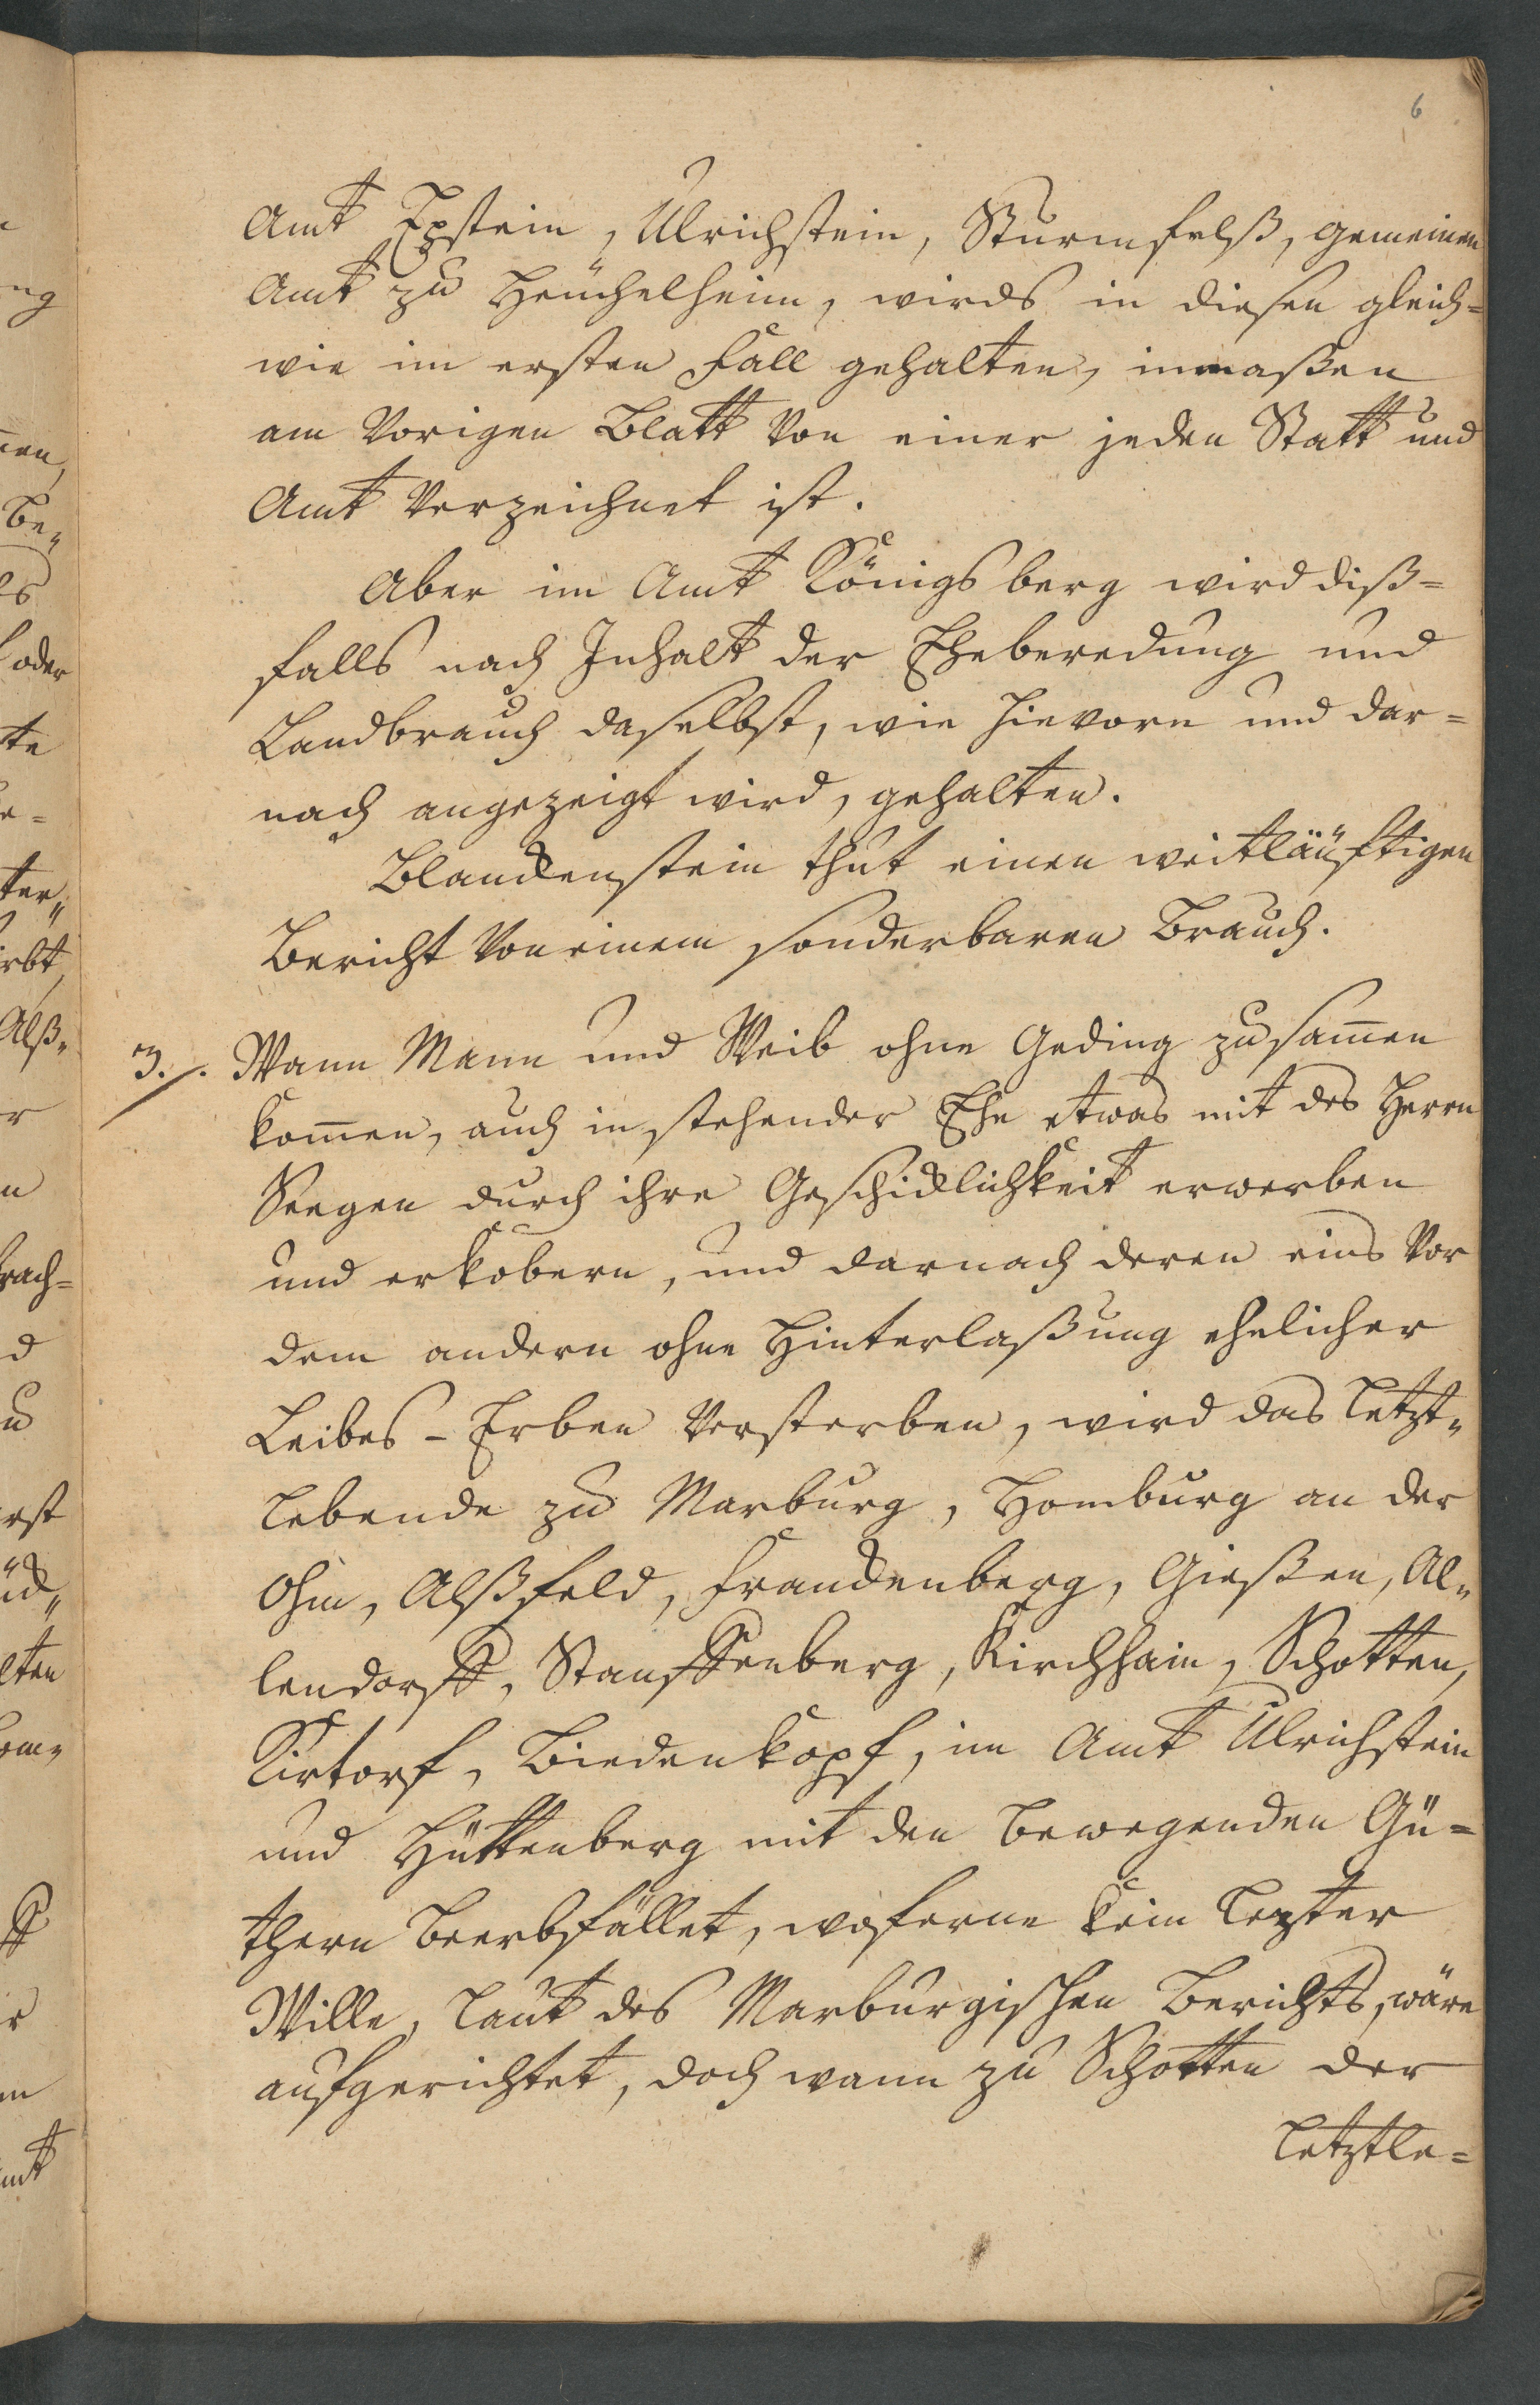 6
Amt Epstein, Ulrichstein, Sturmfelß, gemeinen
Amt zu Heuchelheim, wirds in diesen gleich=
wie im ersten Fall gehalten, inmaßen
am Vorigen Blatt Von einer jeden Statt und
Amt Verzeichnet ist.
Aber im Amt Königsberg wird diß=
falls nach Inhalt der Eheberedung und
Landbrauch daselbst, wie hievorn und dar=
nach angezeigt wird, gehalten.
Blanckenstein thut einen weitläuftigen
Bericht Von einem sonderbaren Brauch.
3. Wann Mann und Weib ohne Geding zusam̄en
kom̄en, auch in stehender Ehe etwas mit des Herrn
Seegen durch ihre Geschicklichkeit erwerben
und erkobern, und darnach deren eins Vor
dem andern ohne Hinterlaßung ehelicher
Leibes-Erben Versterben, wird das letzt„
lebende zu Marburg, Homburg an der
Ohm, Alßfeld, Franckenberg, Gießen, Al„
lendorff, Stauffenberg, Kirchhain, Schotten,
Kirtorf, Biedenkopf, im Amt Ulrichstein
und Hüttenberg mit den bewegenden Gü=
thern beerbfället, woferne kein lezter
Wille, laut des Marburgischen Berichts, wäre
aufgerichtet, doch wann zu Schotten der
letztle=